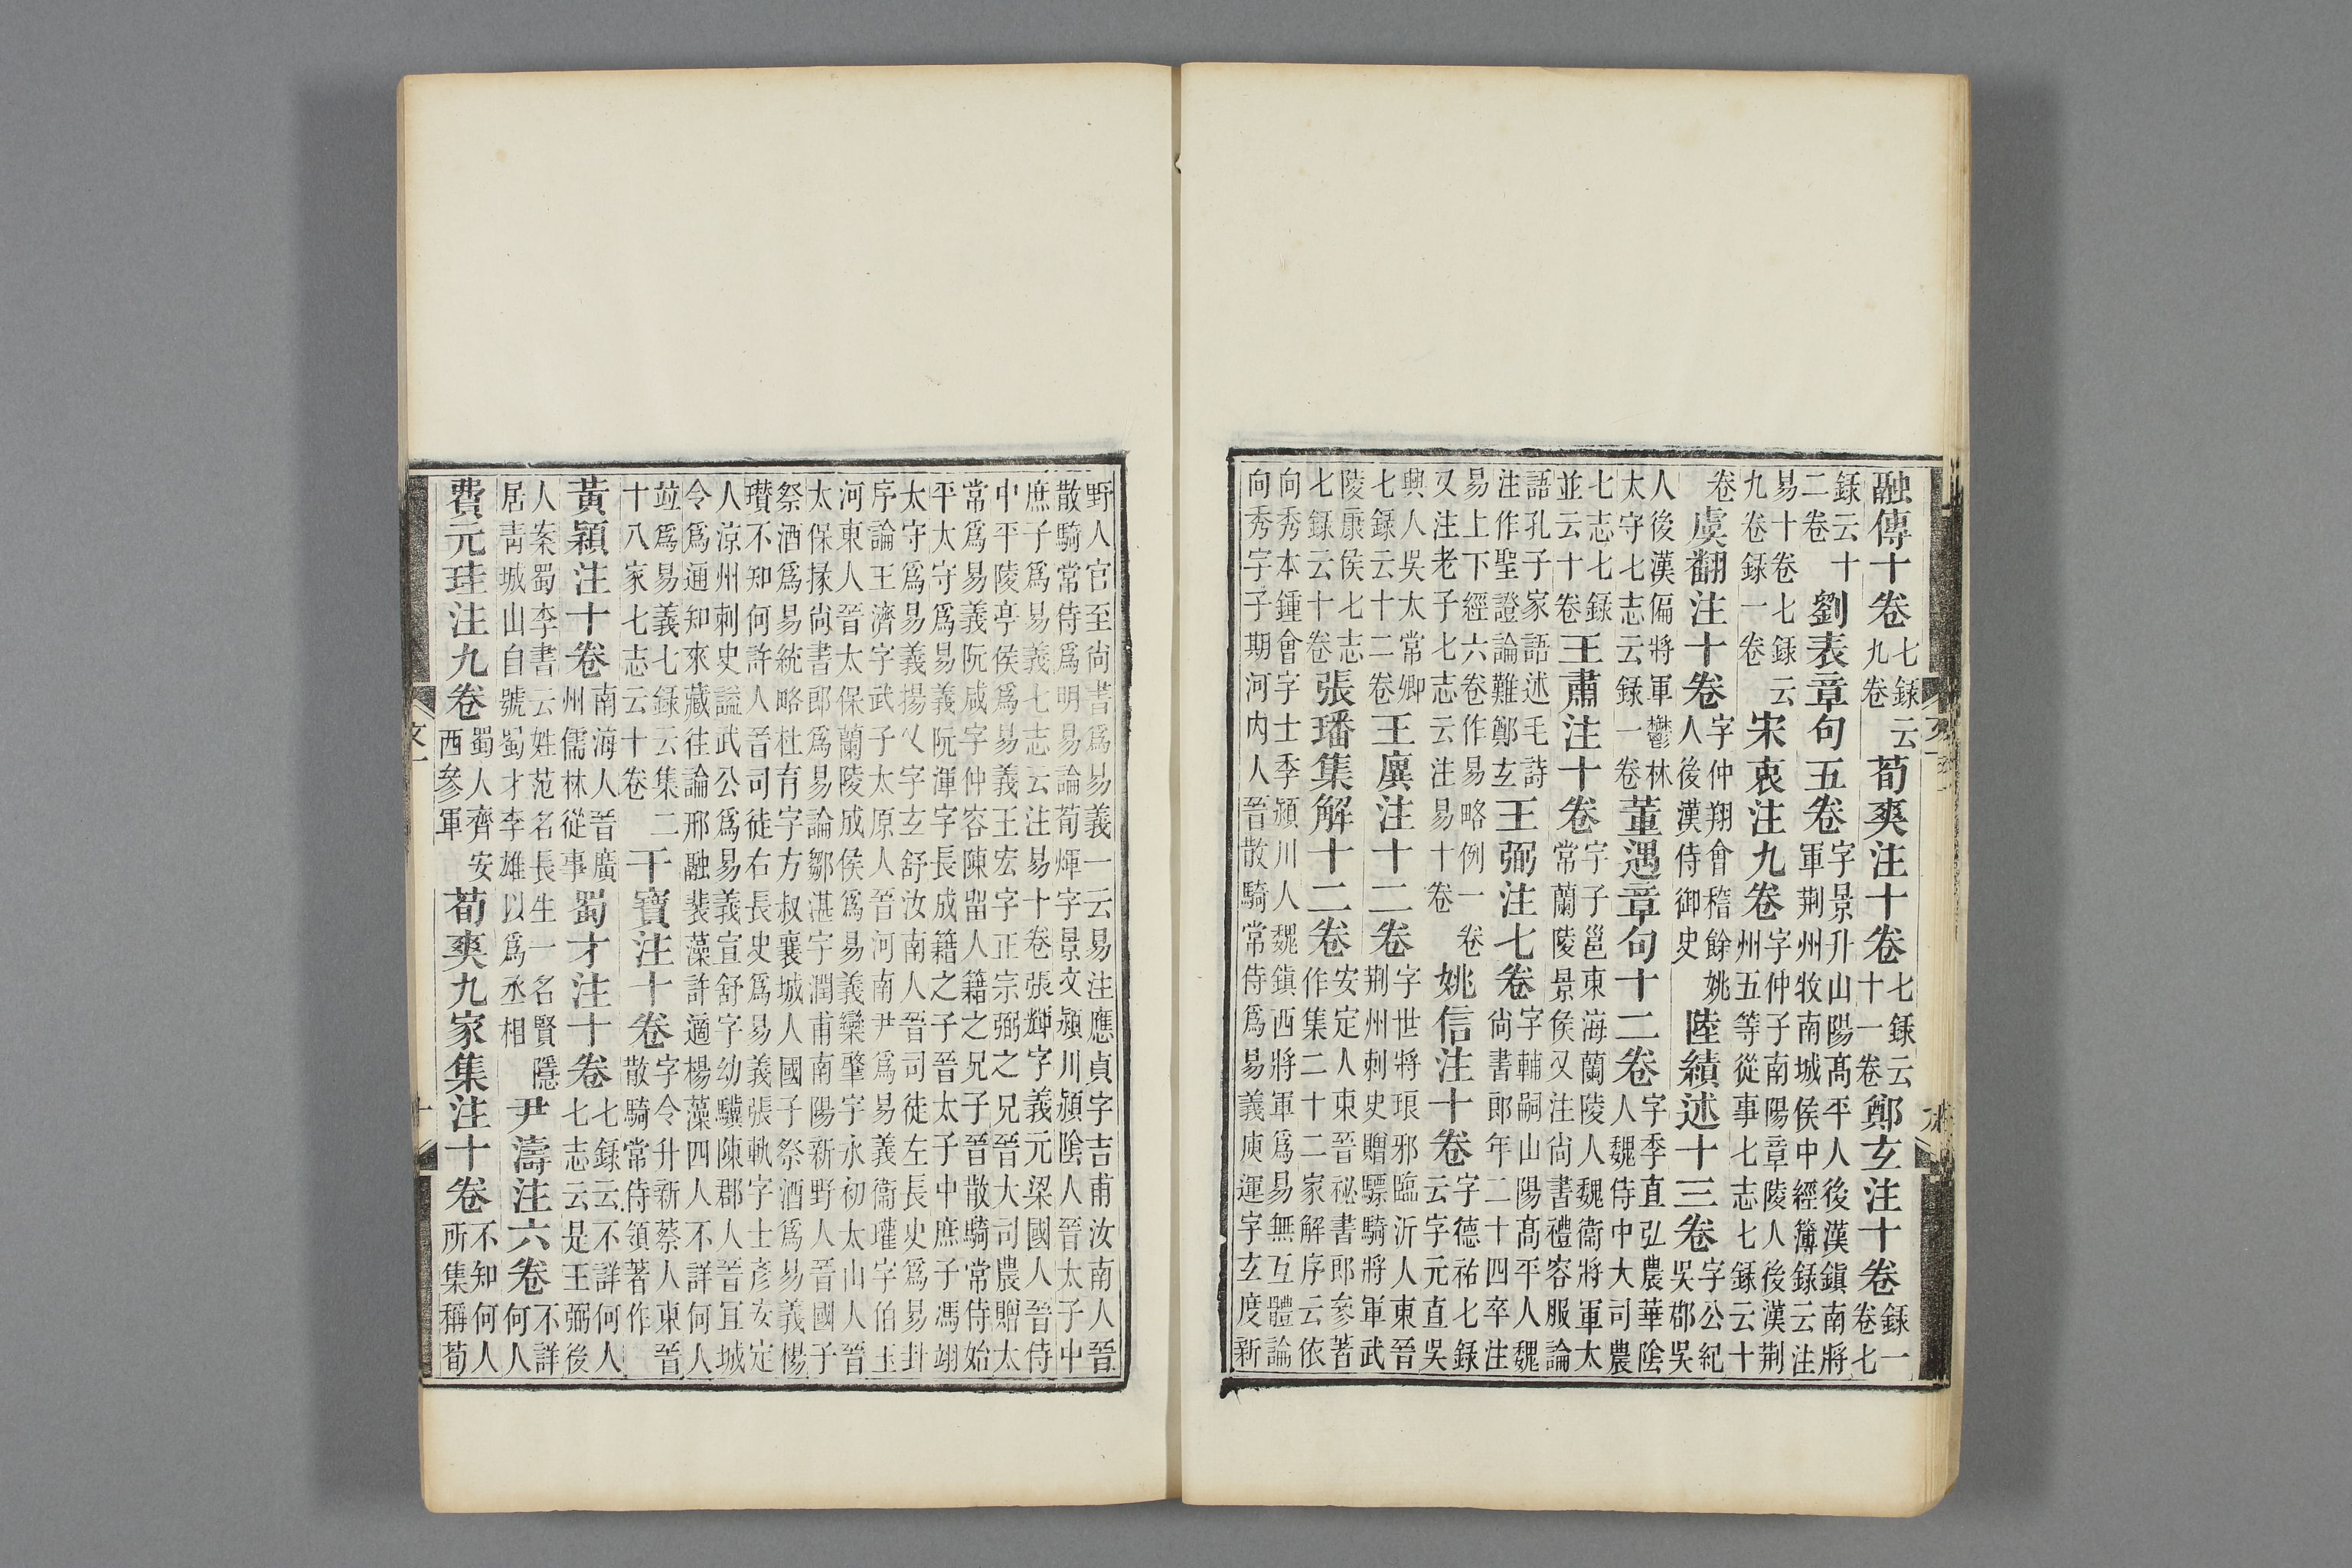 融傳十卷七錄云九卷荀爽注十卷七錄云十一卷鄭玄注十卷錄一卷七
錄云十二卷劉表章句五卷字景升山陽髙平人後漢鎮南將軍荆州牧南城侯中經簿錄云注
易十卷七錄云九卷錄一卷宋衷注九卷字仲子南陽章陵人後漢荆州五等從事七志七錄云十
卷虞翻注十卷字仲翔會稽餘姚人後漢侍御史陸績述十三卷字公紀吳郡吳
人後漢偏將軍鬱林太守七志云錄一卷董遇章句十二卷字季直弘農華陰人魏侍中大司農
七志七錄並云十卷王肅注十卷字子邕東海蘭陵人魏衞將軍太常蘭陵景侯又注尚書禮容服論
語孔子家語述毛詩注作聖證論難鄭玄王弼注七卷字輔嗣山陽髙平人魏尚書郎年二十四卒注
易上下經六卷作易略例一卷又注老子七志云注易十卷姚信注十卷字德祐七錄云字元直吳
興人吳太常卿七錄云十二卷王廙注十二卷字世將琅邪臨沂人東晉荆州刺史贈驃騎將軍武
陵康侯七志七錄云十卷張璠集解十二卷安定人東晉祕書郎參著作集二十二家解序云依
向秀本鍾會字士季潁川人魏鎮西將軍爲易無互體論
向秀字子期河内人晉散騎常侍爲易義庾運字玄度新
野人官至尚書爲易義一云易注應貞字吉甫汝南人晉
散騎常侍爲明易論荀煇字景文潁川潁陰人晉太子中
庶子爲易義七志云注易十卷張輝字義元梁國人晉侍
中平陵亭侯爲易義王宏字正宗弼之兄晉大司農贈太
常爲易義阮咸字仲容陳畱人籍之兄子晉散騎常侍始
平太守爲易義阮渾字長成籍之子晉太子中庶子馮翊
太守爲易義揚乂字玄舒汝南人晉司徒左長史爲易卦
序論王濟字武子太原人晉河南尹爲易義衞瓘字伯玉
河東人晉太保蘭陵成侯爲易義欒肇字永初太山人晉
太保掾尚書郎爲易論鄒湛字潤甫南陽新野人晉國子
祭酒爲易統略杜育字方叔襄城人國子祭酒爲易義楊
瓚不知何許人晉司徒右長史爲易義張軌字士彥安定
人涼州刺史謚武公爲易義宣舒字幼驥陳郡人晉宜城
令爲通知來藏往論邢融裴藻許適楊藻四人不詳何人
竝爲易義七錄云集二十八家七志云十卷干寶注十卷字令升新蔡人東晉散騎常侍領著作
黃穎注十卷南海人晉廣州儒林從事蜀才注十卷七錄云不詳何人七志云是王弼後
人案蜀李書云姓范名長生一名賢隱居靑城山自號蜀才李雄以爲丞相尹濤注六卷不詳何人
費元珪注九卷蜀人齊安西參軍荀爽九家集注十卷不知何人所集稱荀